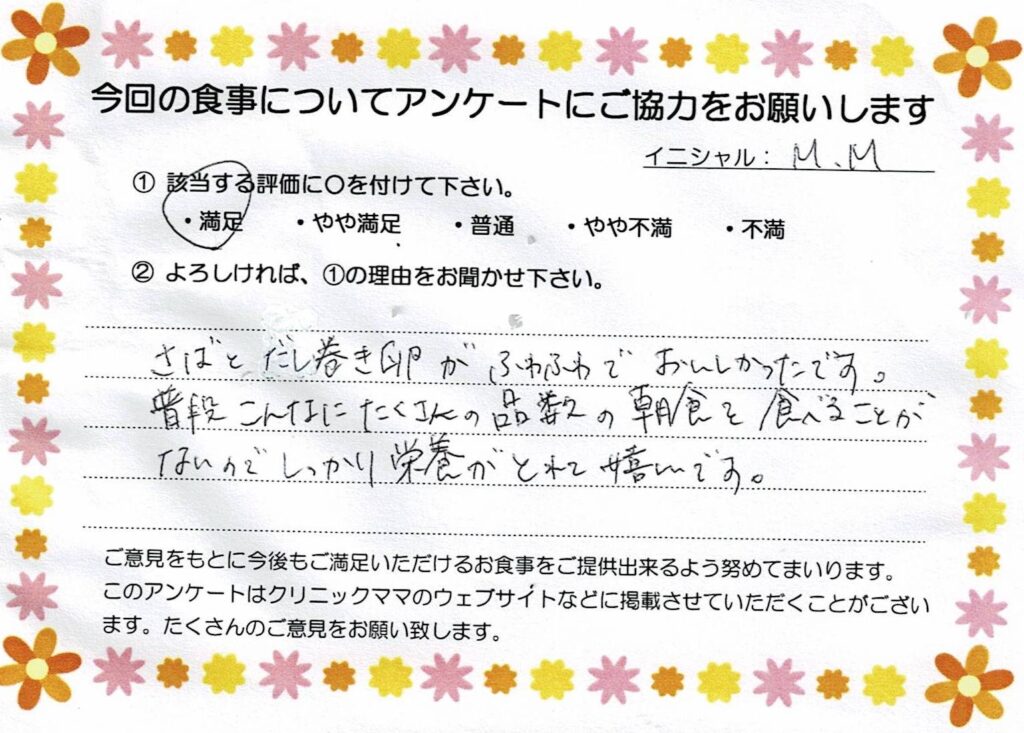 今回の食事についてアンケートにご協力をお願いします
イニシャル： M.M
① 該当する評価に〇を付けて下さい。
・満足 ・やや満足 ・普通 ・やや不満 ・不満
② よろしければ、①の理由をお聞かせ下さい。
さばとだし巻き卵がふわふわでおいしかったです。
普段こんなにたくさんの品数の朝食を食べることが
ないのでしっかり栄養がとれて嬉しいです。
ご意見をもとに今後もご満足いただけるお食事をご提供出来るよう努めてまいります。
このアンケートはクリニックママのウェブサイトなどに掲載させていただくことがござい
ます。たくさんのご意見をお願い致します。